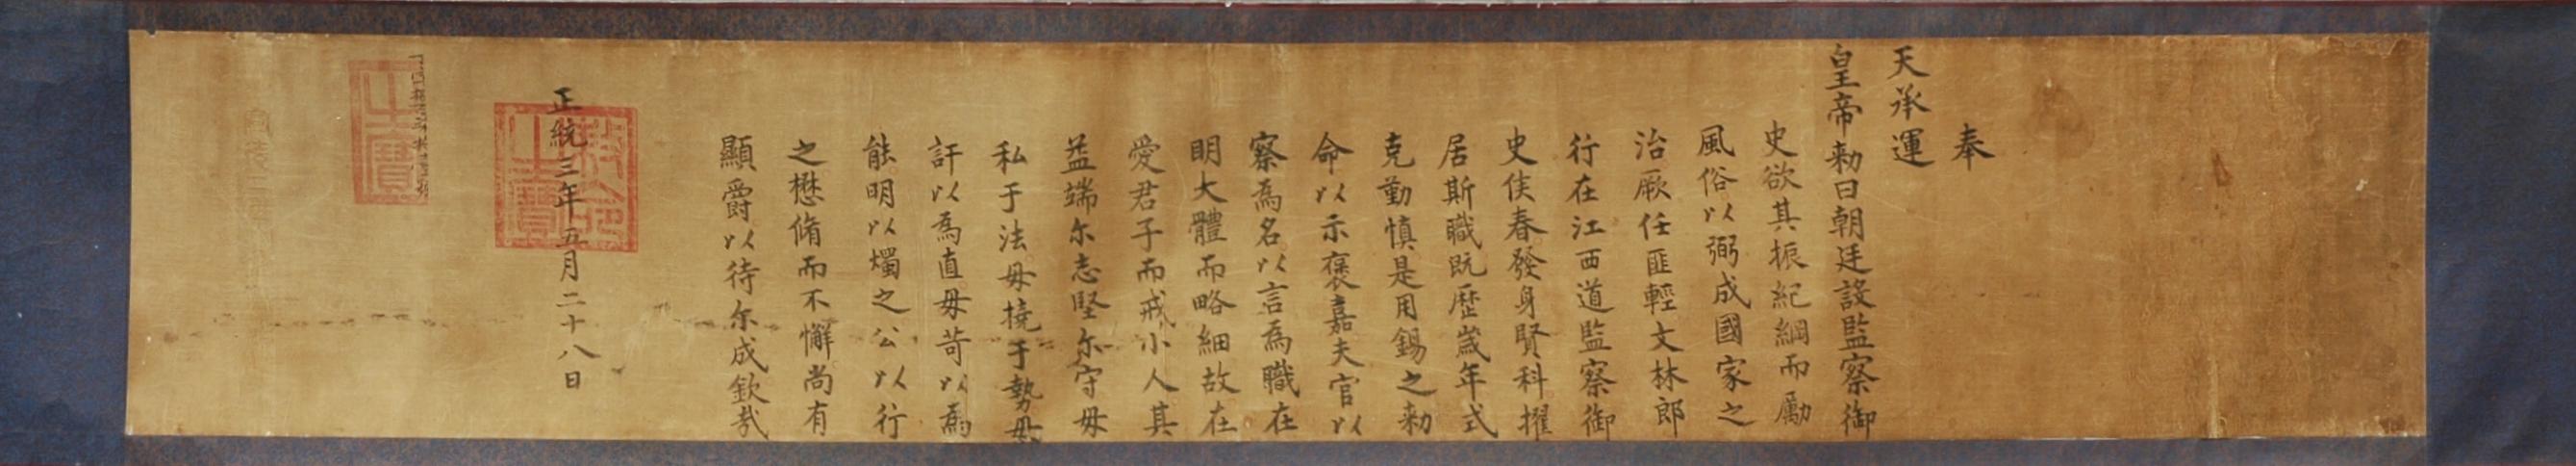 奉
天承運
皇帝勅曰朝廷設監察御
史欲其振紀綱而勵
風俗以弼成國家之
治厥任匪輕文林郎
行在江西道監察御
史侯春發身賢科擢
居斯職既歷歲年式
克勤慎是用錫之勅
命以示褒嘉夫官以
察為名以言為職在
明大體而略細故在
愛君子而戒小人其
益端尔志堅尔守毋
私于法毋撓于勢毋
訐以為直毋苛以為
能明以燭之公以行
之懋脩而不懈尚有
顯爵以待尔成欽哉
正統三年五月二十八日
勅命之寶
之寶